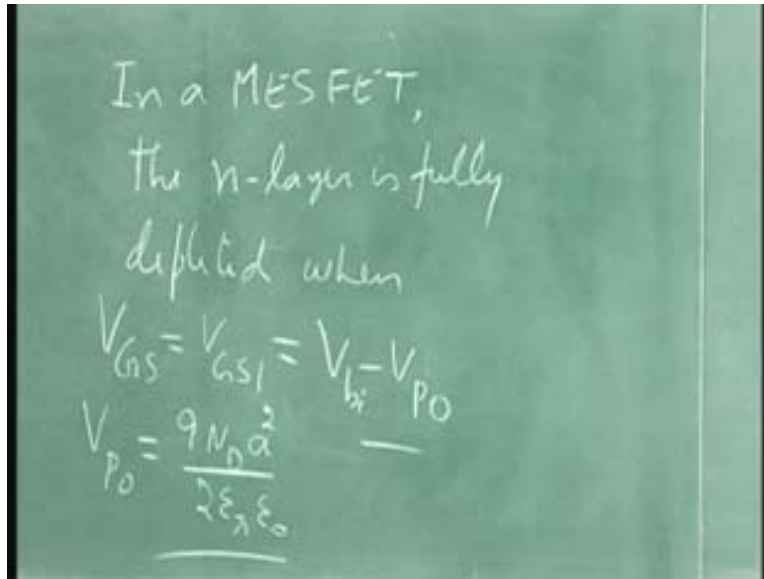 In a MESFET,
the n-layer is fully
depleted when
V_GS = V_GS1 = V_bi - V_PO
V_PO = qN_D a² / 2ε_r ε_o